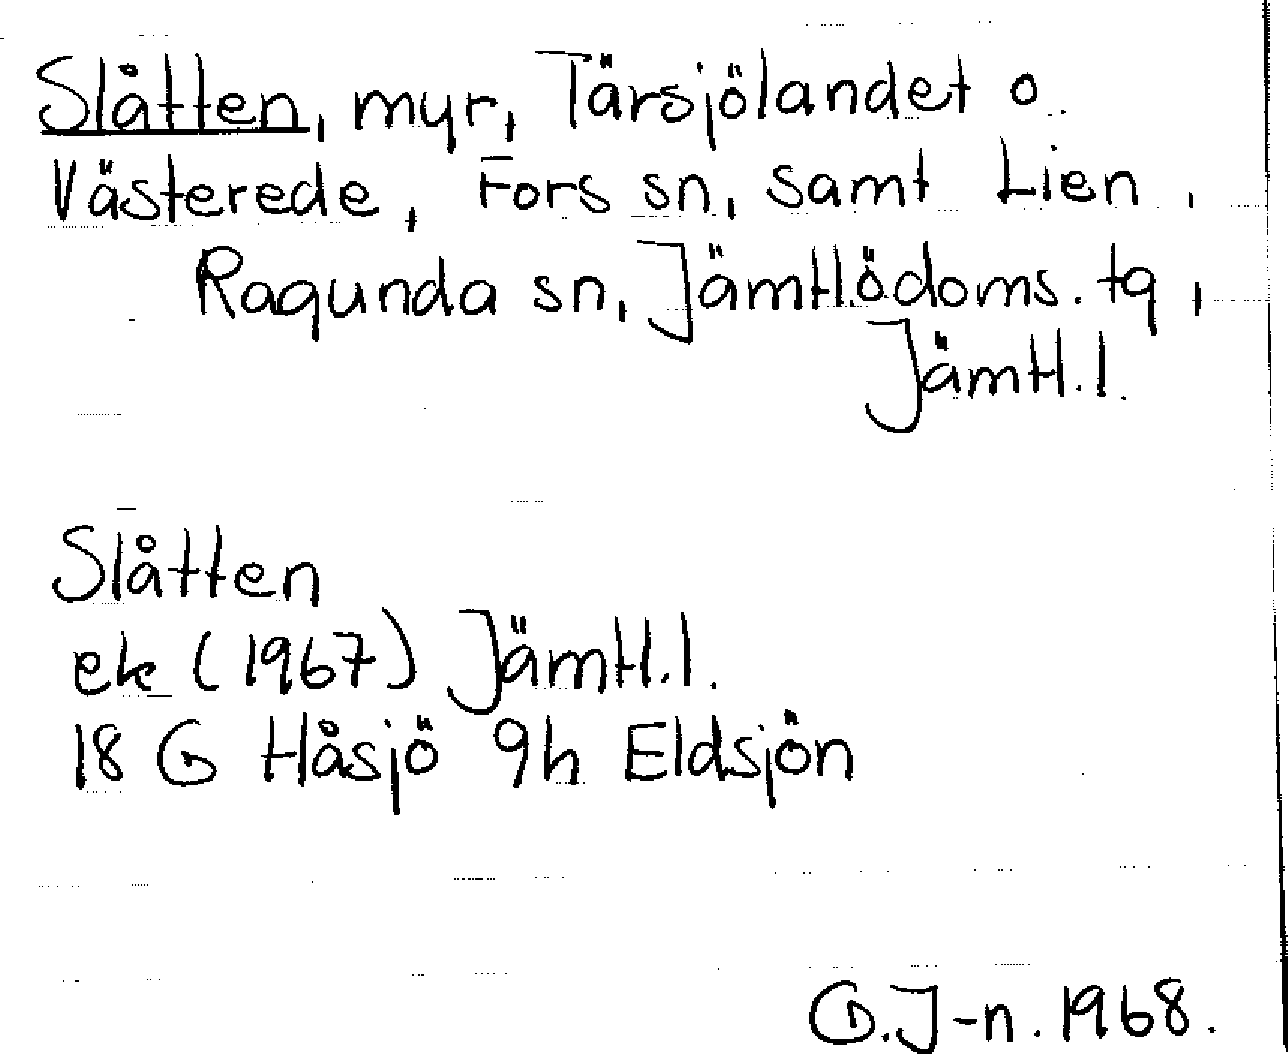 Slåtten, myr, Tärsjölandet o.
Västerede, Fors sn, samt Lien,
Ragunda sn, Jämtl.ödoms. tg,
Jämtl.l.
Slåtten
ek (1967) Jämtl.l.
18 G Håsjö 9h Eldsjön
G.J-n. 1968.